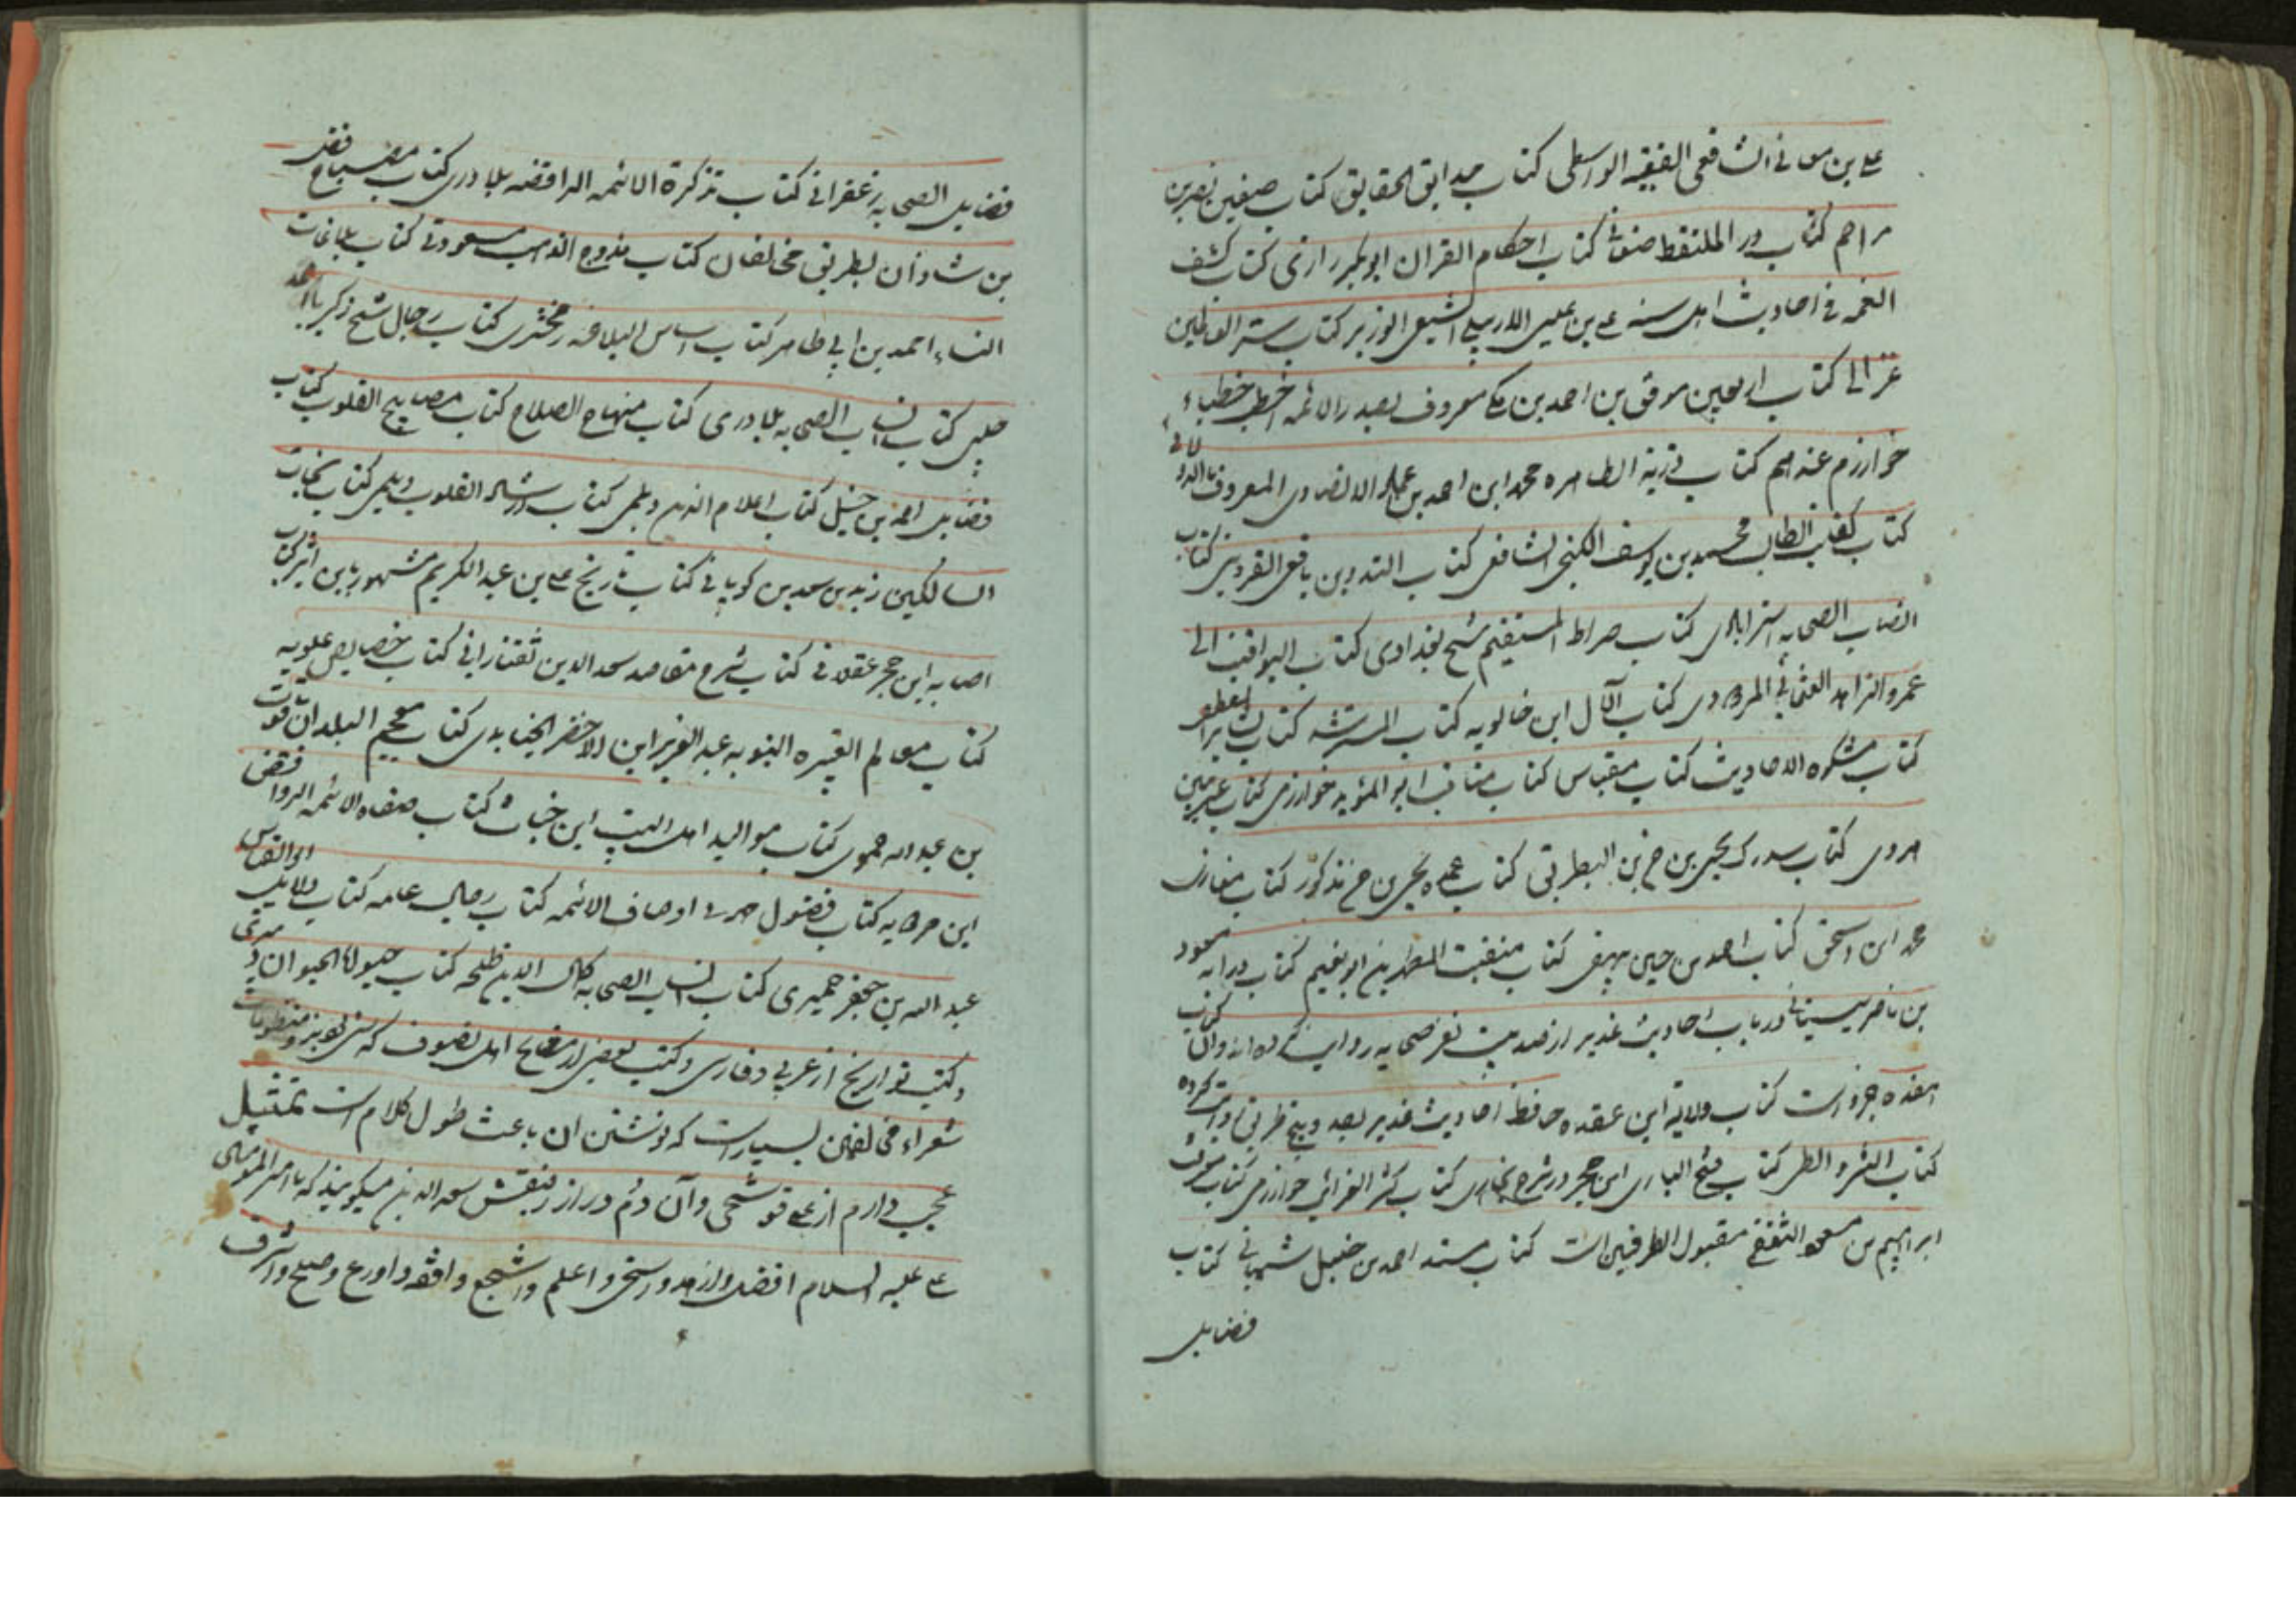 علے بن مغانے الشافعی الفقیه الواسطی کتاب حدایق الحقایق کتاب صفین نصر بن
مراحم کتاب در الملتقط کتاب احکام القران ابوبکر رازی کتاب کشف
الغمه فی احادیث اهل سنه علے بن عیسی الاربیلے الشیعی الوزیر کتاب ستر العالمین
غزالی کتاب اربعین موفق بن احمد بن مکے معروف بصدر الائمه اخطب خطباء
خوارزم عنه هم کتاب ذریة الطاهره محمد ابن احمد بن حماد الانصاری المعروف بالدولابی
کتاب کفایت الطالب محمد بن یوسف الکنجی الشافعی کتاب التدوین یافعی القزوینی کتاب
انساب الصحابه استرابادی کتاب صراط المستقیم شیخ بغدادی کتاب الیواقیت ابی
عمرو الزاهد کتاب الآل ابن خالویه کتاب کتاب
کتاب مشکوة الاحادیث کتاب مقباس کتاب مناقب ابو المؤید خوارزمی کتاب غریبین
هروی کتاب یحیی بن البطریق کتاب عمده یحیی بن مذکور کتاب مغازی
محمد ابن اسحق کتاب احمد بن حسین بیهقی کتاب منقبت المطهرین ابو نعیم کتاب درایه مسعود
بن ناصر سیستانی در باب احادیث غدیر از صد بیست نفر صحابه روایت کرده اند وان کتاب
هفده جزو است کتاب ولایه ابن عقده حافظ احادیث غدیر بصد و پنج طریق روایت کرده
کتاب النشر و الطی کتاب فتح الباری ابن حجر در شرح بخاری کتاب کنز خوارزمی کتاب معرفت
ابراهیم بن الثقفی مقبول الطرفین است کتاب مسند احمد بن حنبل شیبانی کتاب
فضایل
فضایل الصحابه زعفرانی کتاب تذکرة الائمه الرافضه بلادری کتاب مصباح فضل
بن شاذان بطریق مخالفان کتاب مروج الذهب مسعودی کتاب بلاغات
النساء احمد بن ابی طاهر کتاب اساس البلاغه زمخشری کتاب رجال شیخ
حلبی کتاب انساب الصحابه بلادری کتاب منهاج الصلاح کتاب مصابیح القلوب کتاب
فضایل احمد بن حنبل کتاب اعلام الدین دیلمی کتاب ارشاد القلوب دیلمی کتاب نجات
السالکین زید بن سعد بن کتاب تاریخ علے بن عبد الکریم مشهور بابن اثیر کتاب
اصابه ابن حجر عسقلانی کتاب شرح مقاصد سعد الدین تفتازانی کتاب خصایص علویه
کتاب معالم العتره النبویه عبد العزیز ابن الاخضر الجنابدی کتاب معجم البلدان یاقوت
بن عبد الله حموی کتاب موالید اهل البیت ابن خشاب کتاب صفاة الائمه الروافض
ابن کتاب فضول اوصاف الائمه کتاب رجال عامه کتاب دلایل ابو العباس
عبد الله بن جعفر حمیری کتاب انساب الصحابه کمال الدین طلحه کتاب حیوة الحیوان دمیری
وکتب تواریخ از عربی و فارسی وکتب بعضی از مشایخ اهل تصوف که و منظومات
شعراء مخالفین بسیار است که نوشتن ان باعث طول کلام است تمثیل
عجب دارم از علے قوشجی وآن دم دراز رفیقش سعد الدین میگویند که امیر المومنین
علے علیه السلام افضل وازهد واسخی و اعلم واشجع وافقه واورع وصلح واشرف